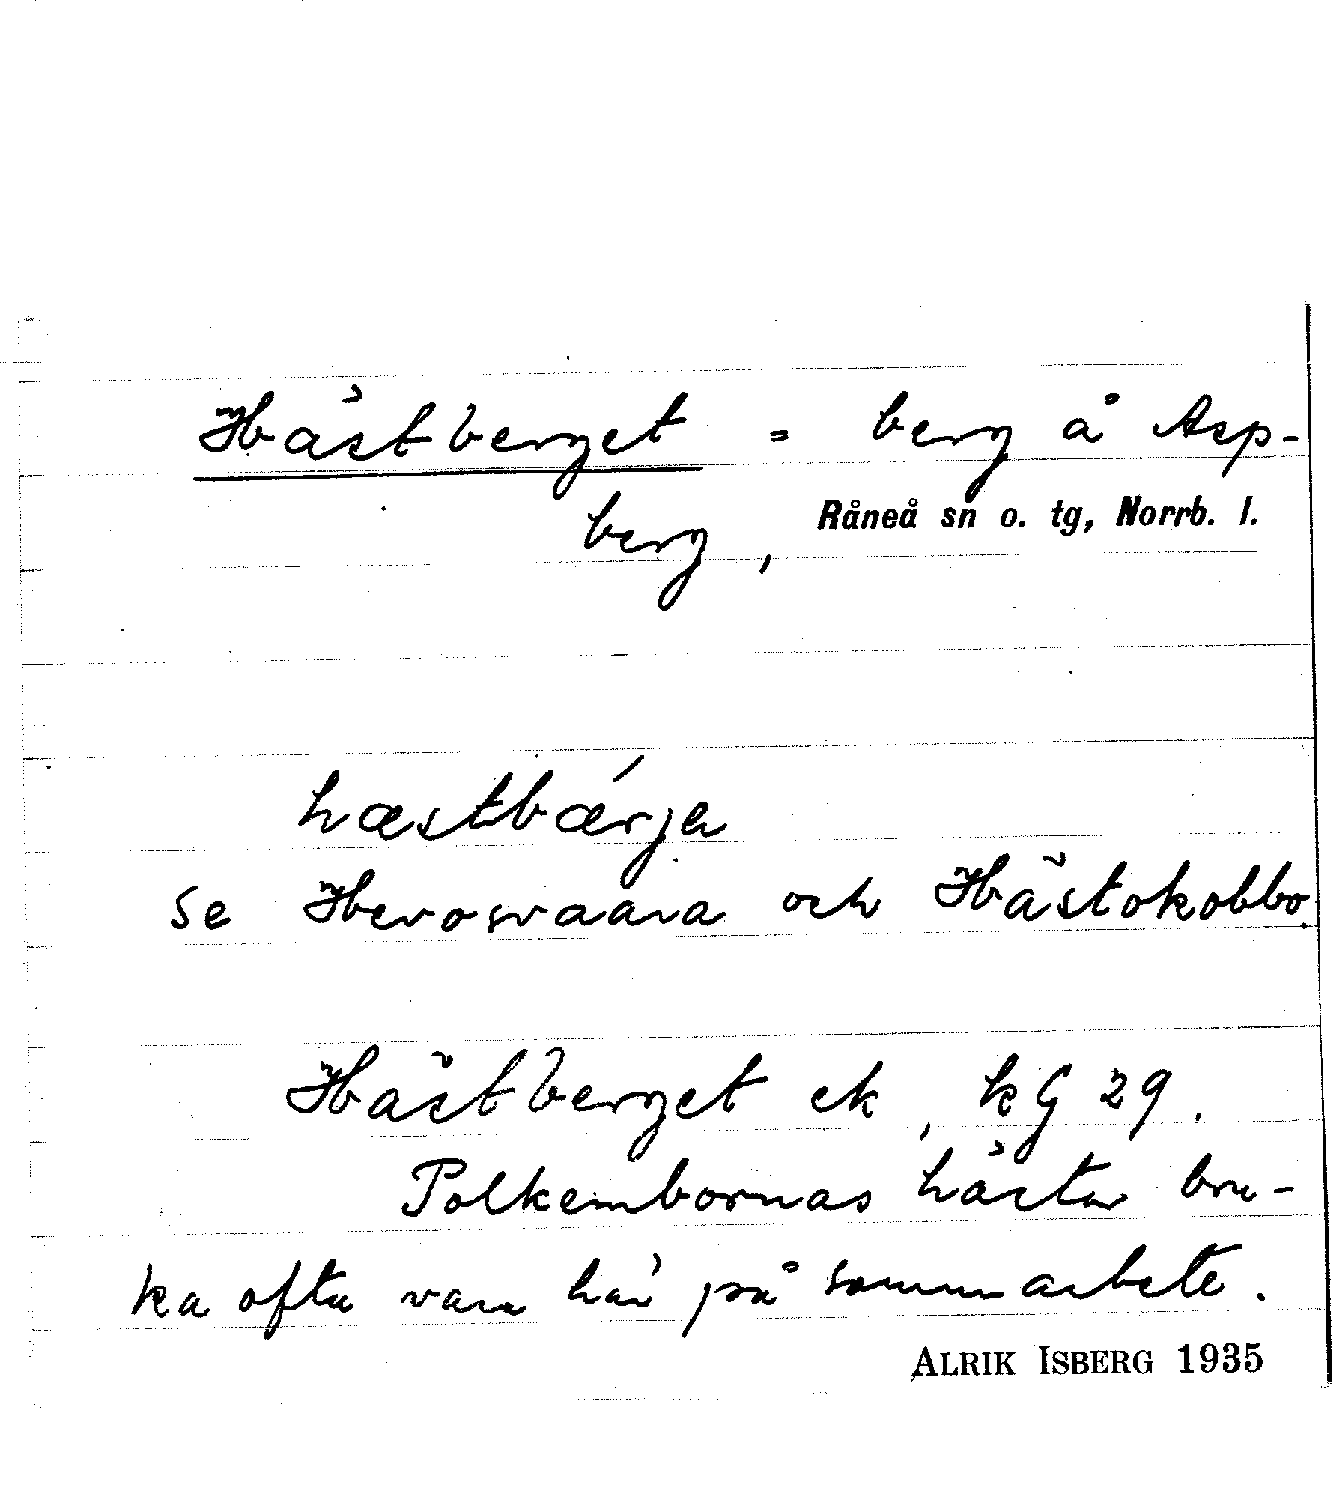 Hästberget = berg å Asp-
berg, Råneå sn o. tg, Norrb. l.
hæstbǽrja
se Hevosvaara och Hästokobbo.
Hästberget ek, kG 29.
Polkembornas hästar bru-
ka ofta vara här på sommarbete.
ALRIK ISBERG 1935